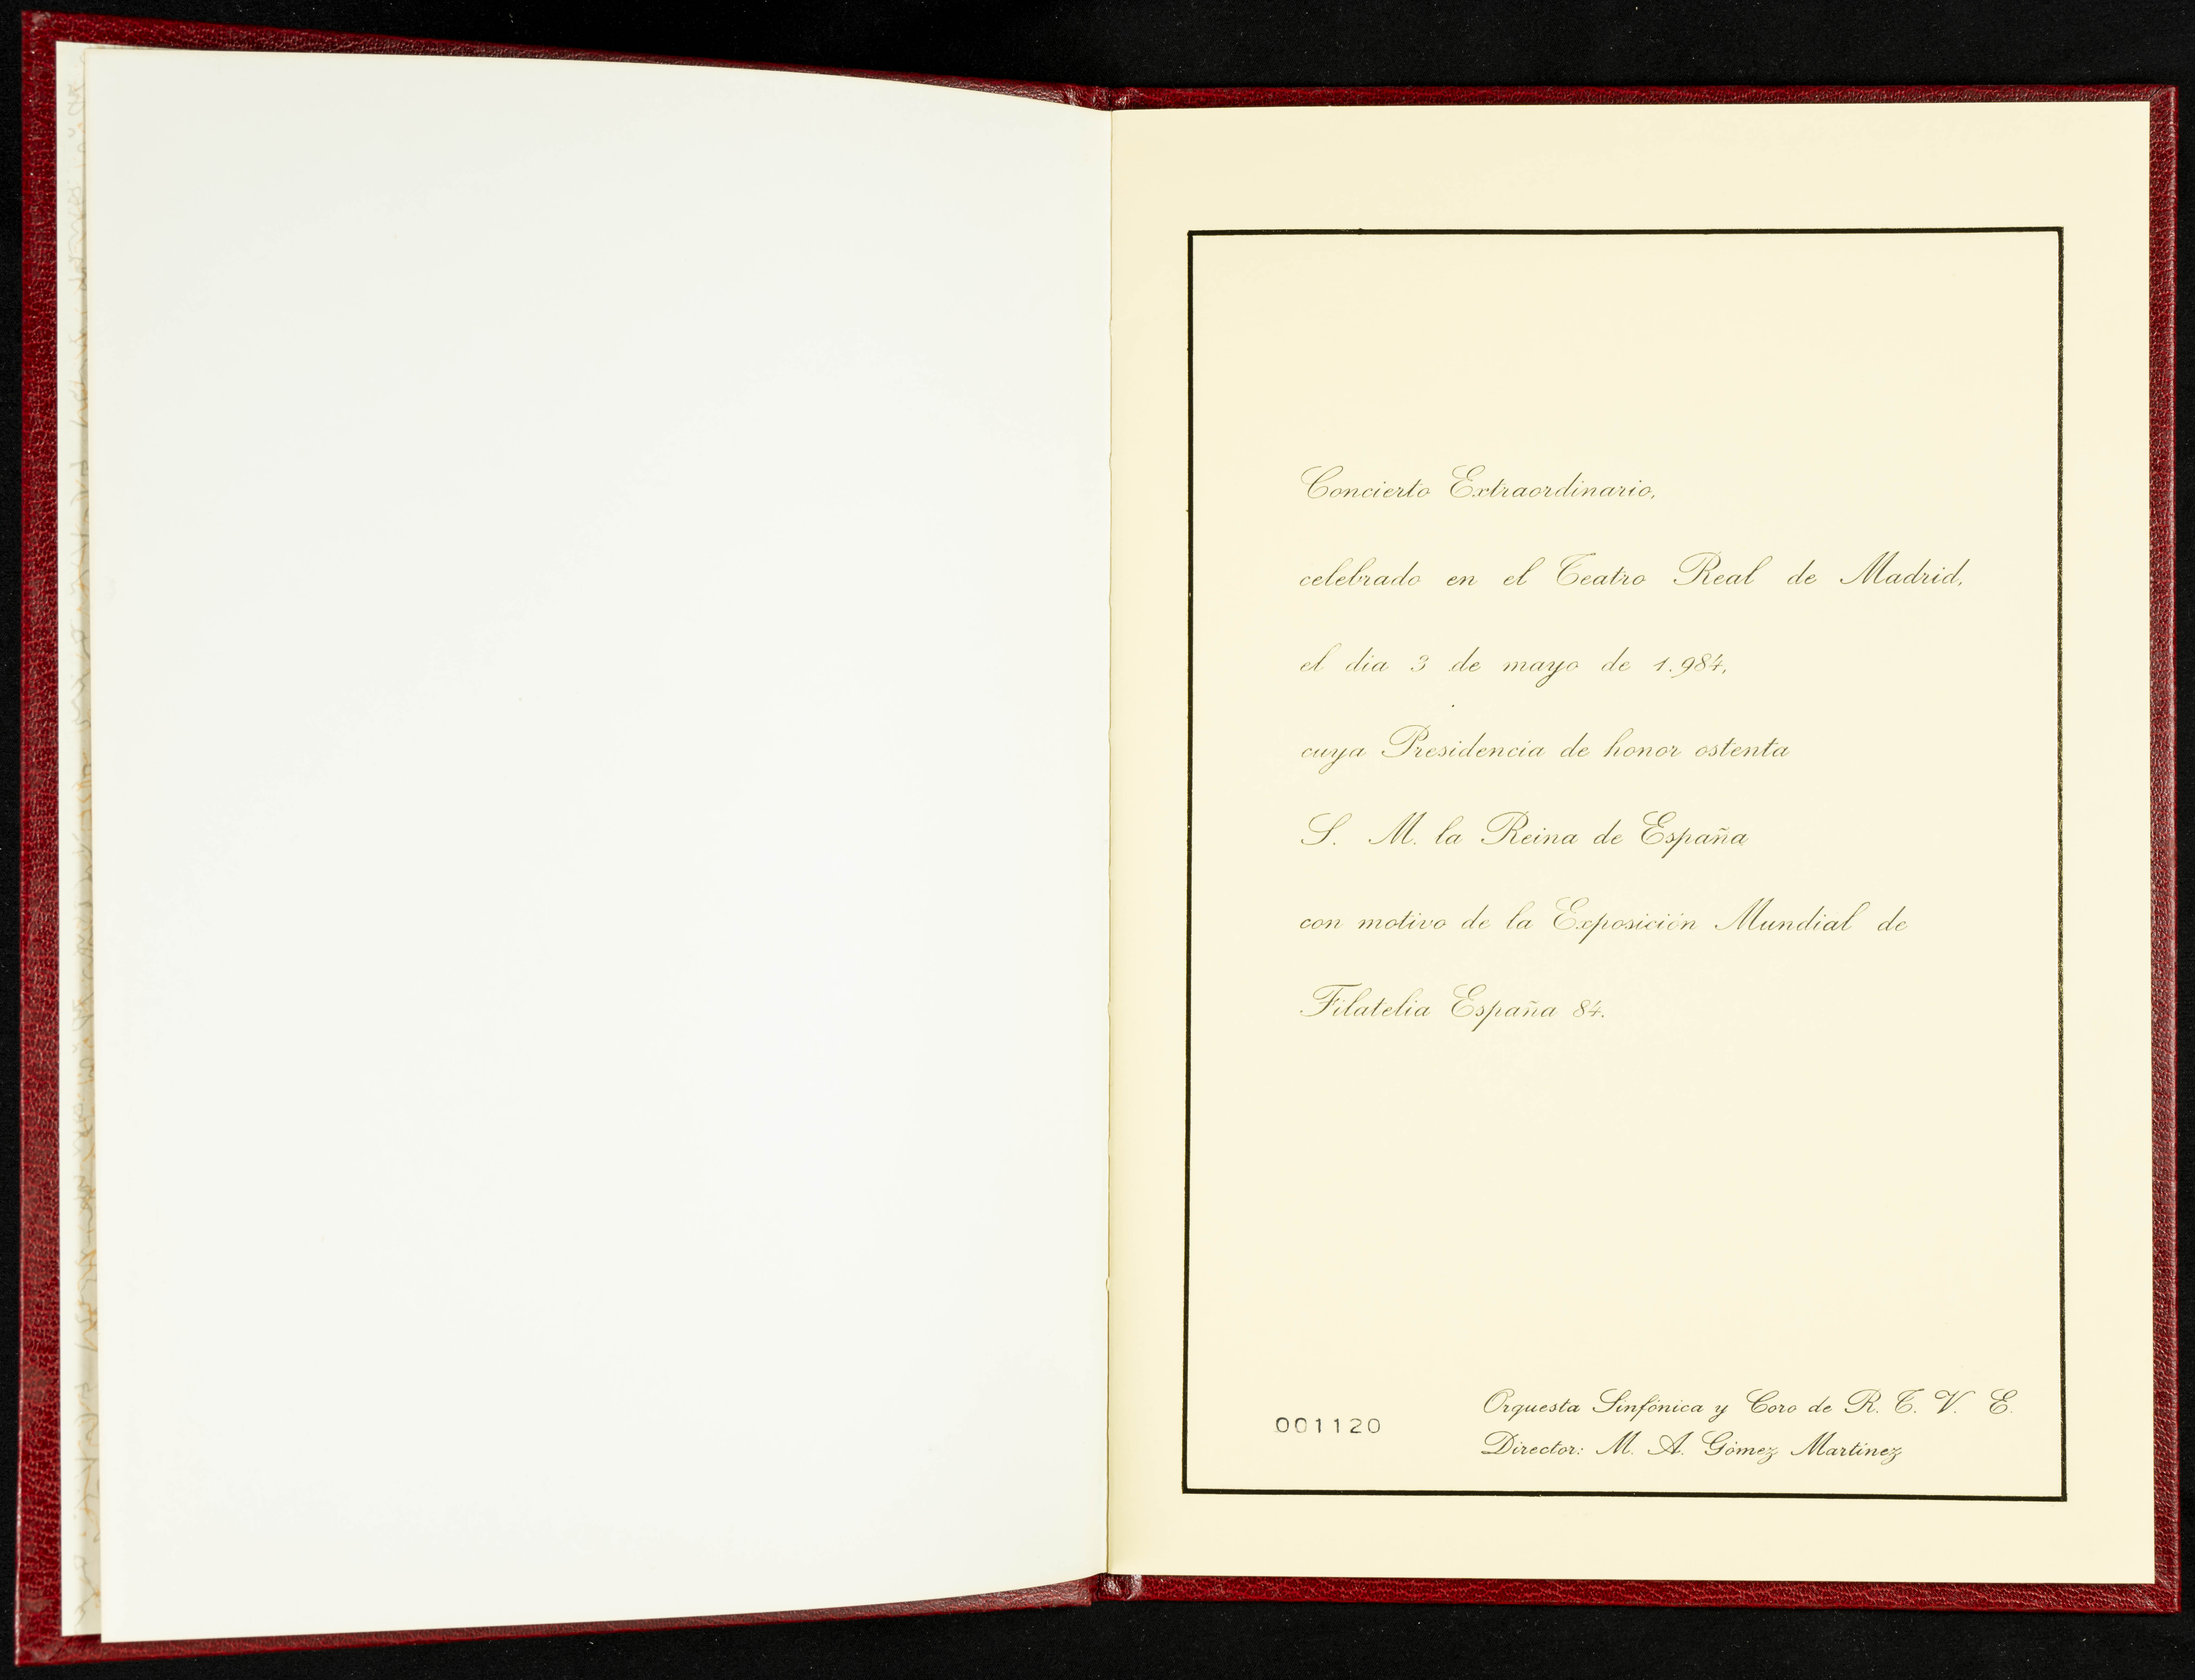 Concierto Extraordinario,
celebrado en el Teatro Real de Madrid,
el dia 3 de mayo de 1.984,
cuya Presidencia de honor ostenta
S. M. la Reina de España
con motivo de la Exposición Mundial de
Filatelia España 84.
001120
Orquesta Sinfónica y Coro de R. T. V. E.
Director: M. A. Gómez Martínez